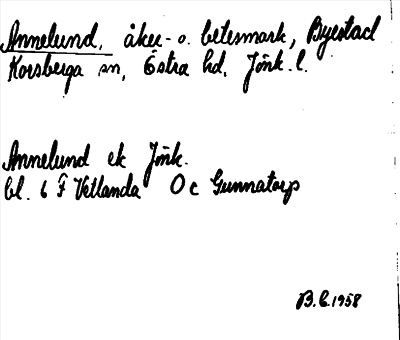 Annelund, åker- o. betesmark, Byestad
Korsberga sn, Östra hd, Jönk. l.
Annelund ek Jönk.
bl. 6 F Vetlanda O c Gunnatorp
B.E. 1958